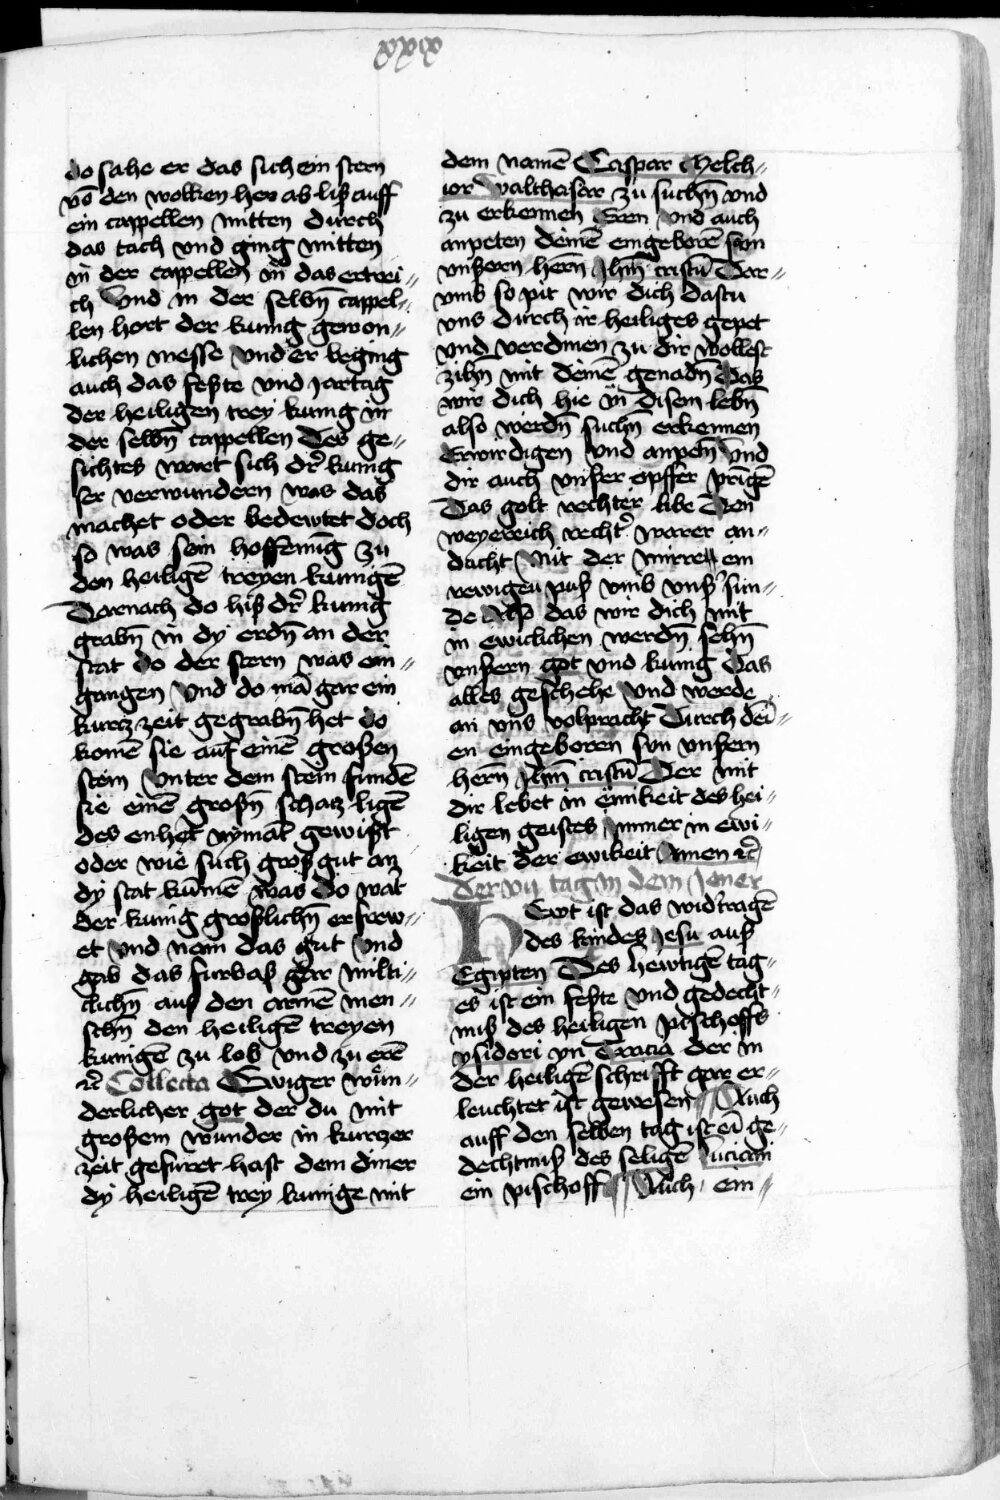 xxx
do sahe er das sich ein stern
vō den wolken her ab liß auff
ein cappellen mitten durch
das tach vnd ging mitten
in der cappellen in das ertrei-
ch Vnd in der selbn̄ cappel-
len hort der kunig gewon-
lichen messe Vnd er beging
auch das feste vnd jartag
der heiligen trey kunig in
der selbn̄ cappellen Des ge-
sichtes wart sich dr̄ kunig
ser verwundern was das
machet oder bedewtet doch
so was sein hoffenūg zu
den heiligē treyen kunigē
Darnach do hiß dr̄ kunig
grabn̄ in dy erdn̄ an der
stat do der stern was ein-
gangen Vnd do mā gar ein
kurtz zeit gegrabn̄ het do
komē sie auf einē großen
stein Vnter dem stein fundē
sie einē großn̄ schatz ligē
des enhet nymāt gewist
oder wie such groß gut an
dy stat kumē was do wart
der kunig großlichn̄ erfrew-
et Vnd nam das gut Vnd
gab das furbaß gar milti-
clichn̄ auß den armē men-
schn̄ den heiligē treyen
kunigē zu lob vnd zu erē
⁊c̄ Collecta Ewiger wun-
derlicher got der du mit
großem wunder in kurtzer
zeit gefuret hast dem diner
dy heiligē trey kunige mit
dem namē Caspar Melch-
ior Walthasar zu suchn̄ vnd
zu erkennen Eren Vnd auch
anpeten deinē eingeborē sun
vnßern herrn̄ Jhm̄ cristū Dar-
vmb so pit wir dich dastu
vns durch ir heiliges gepet
Vnd verdinen zu dir wollest
zihn̄ mit deinē genadn̄ Das
wir dich hie in disem lebn̄
also werdn̄ suchn̄ erkennen
Erwirdigen Vnd anpetn̄ Vnd
dir auch vnßer opffer pringē
Das golt rechter libe Den
weyereich recht̄ warer an-
dacht Mit der mirre ein
rewigen puß vmb vnß̄ sun-
de Also das wir dich mit
in ewiclichen werdn̄ sehn̄
vnßern got vnd kunig Das
alles geschehe Vnd werde
an vns volpracht Durch dei-
en eingeboren sun vnßern
herrn̄ Jhm̄ cristū Der mit
dir lebet in einikeit des hei-
ligen geistes ymmer in ewi-
keit der ewikeit Amen ⁊c̄
Der vij tag in dem Jener
Hewt ist das wid̄tragē
des kindes Jesu auß
Egipten Des hewtigē tag-
es ist ein feste vnd gedecht-
niß des heiligen pischoffs
ysidori yn Tracia der in
der heiligē schrifft gar er-
leuchtet ist gewesen Auch
auff den selben tag ist ei ge-
dechtniß des seligē luciani
ein pischoff Auch ein-